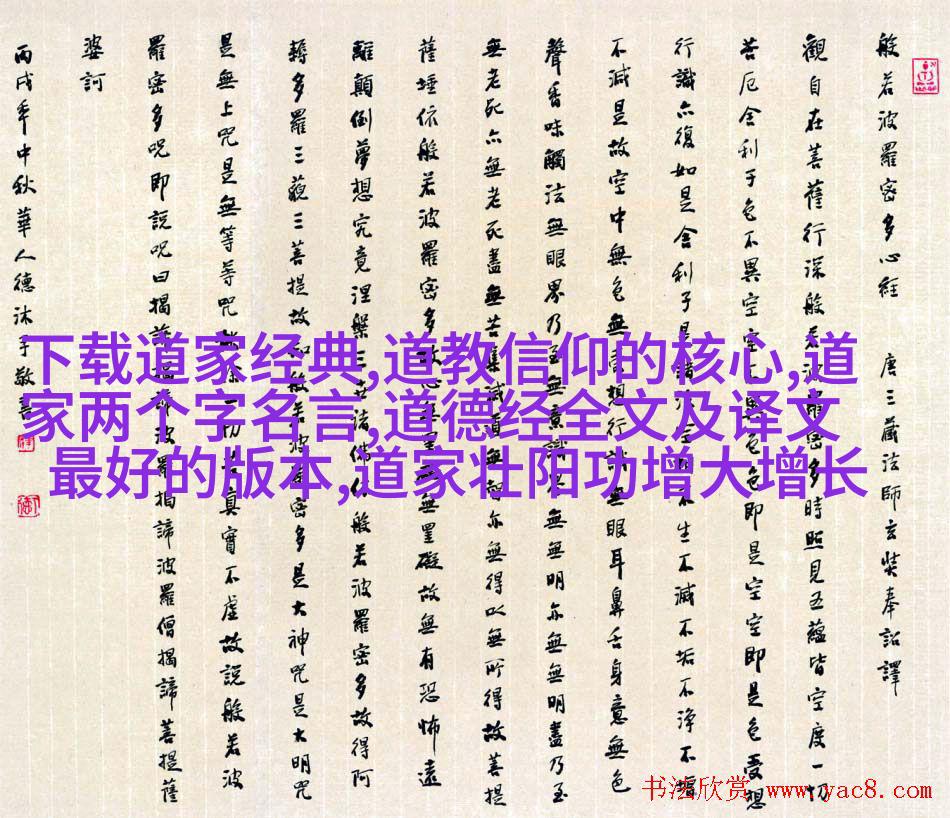 般若波羅密多心経 唐三藏法師玄奘奉詔譯
觀自在菩薩行深般若波羅密多時照見五蘊皆空度一切
苦厄舍利子色不異空空不異色色即是空空即是色受想
行識亦復如是舍利子是諸法空相不生不滅不垢不淨不增
不減是故空中無色無受想行識無眼耳鼻舌身意無色
聲香味觸法無眼界乃至無意識界無無明亦無無明盡乃至
無老死亦無老死盡無苦集滅道無智亦無得以無所得故菩提
薩埵依般若波羅密多故心無罣礙無罣礙故無有恐怖遠
離顛倒夢想究竟涅槃三世諸佛依般若波羅密多故得阿
耨多羅三藐三菩提故知般若波羅密多是大神咒是大明咒
是無上咒是無等等咒能除一切苦真實不虛故說般若波
羅密多咒即說咒曰揭諦揭諦波羅揭諦波羅僧揭諦菩提薩
婆訶
丙戌年中秋華人德沐手敬書
下载道家经典,道教信仰的核心,道
家两个字名言,道德经全文及译文
最好的版本,道家壮阳功增大增长
书法欣赏 www.yac8.com